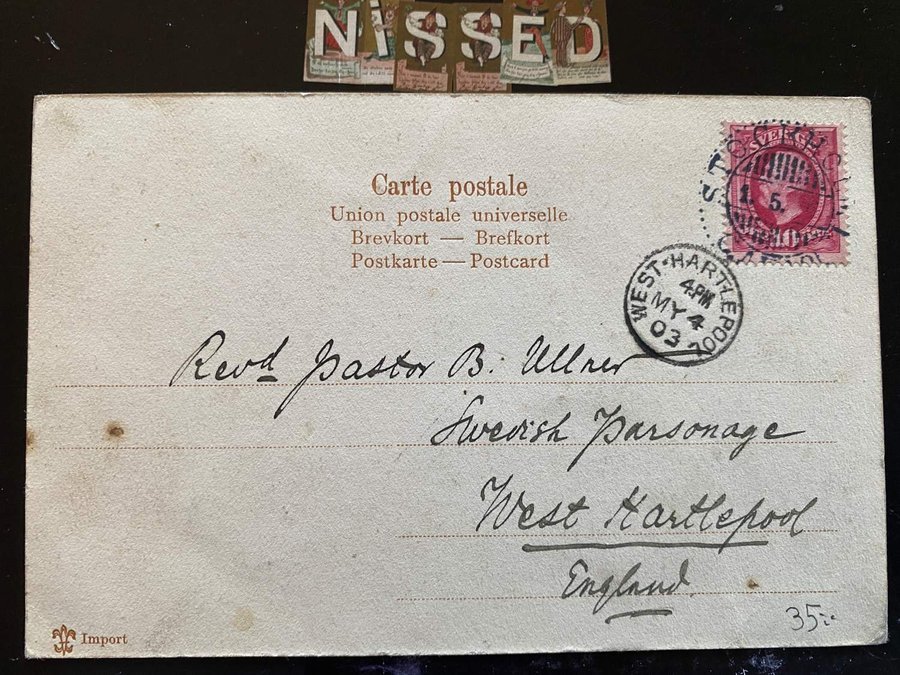 NiSSED
Carte postale
Union postale universelle
Brevkort — Brefkort
Postkarte — Postcard
SVERGE
STOCKHOLM
1. 5.
WEST·HARTLEPOOL
4.PM
MY 4
03
Revd Pastor B. Ullner
Swedish Parsonage
West Hartlepool
England.
35:-
Import